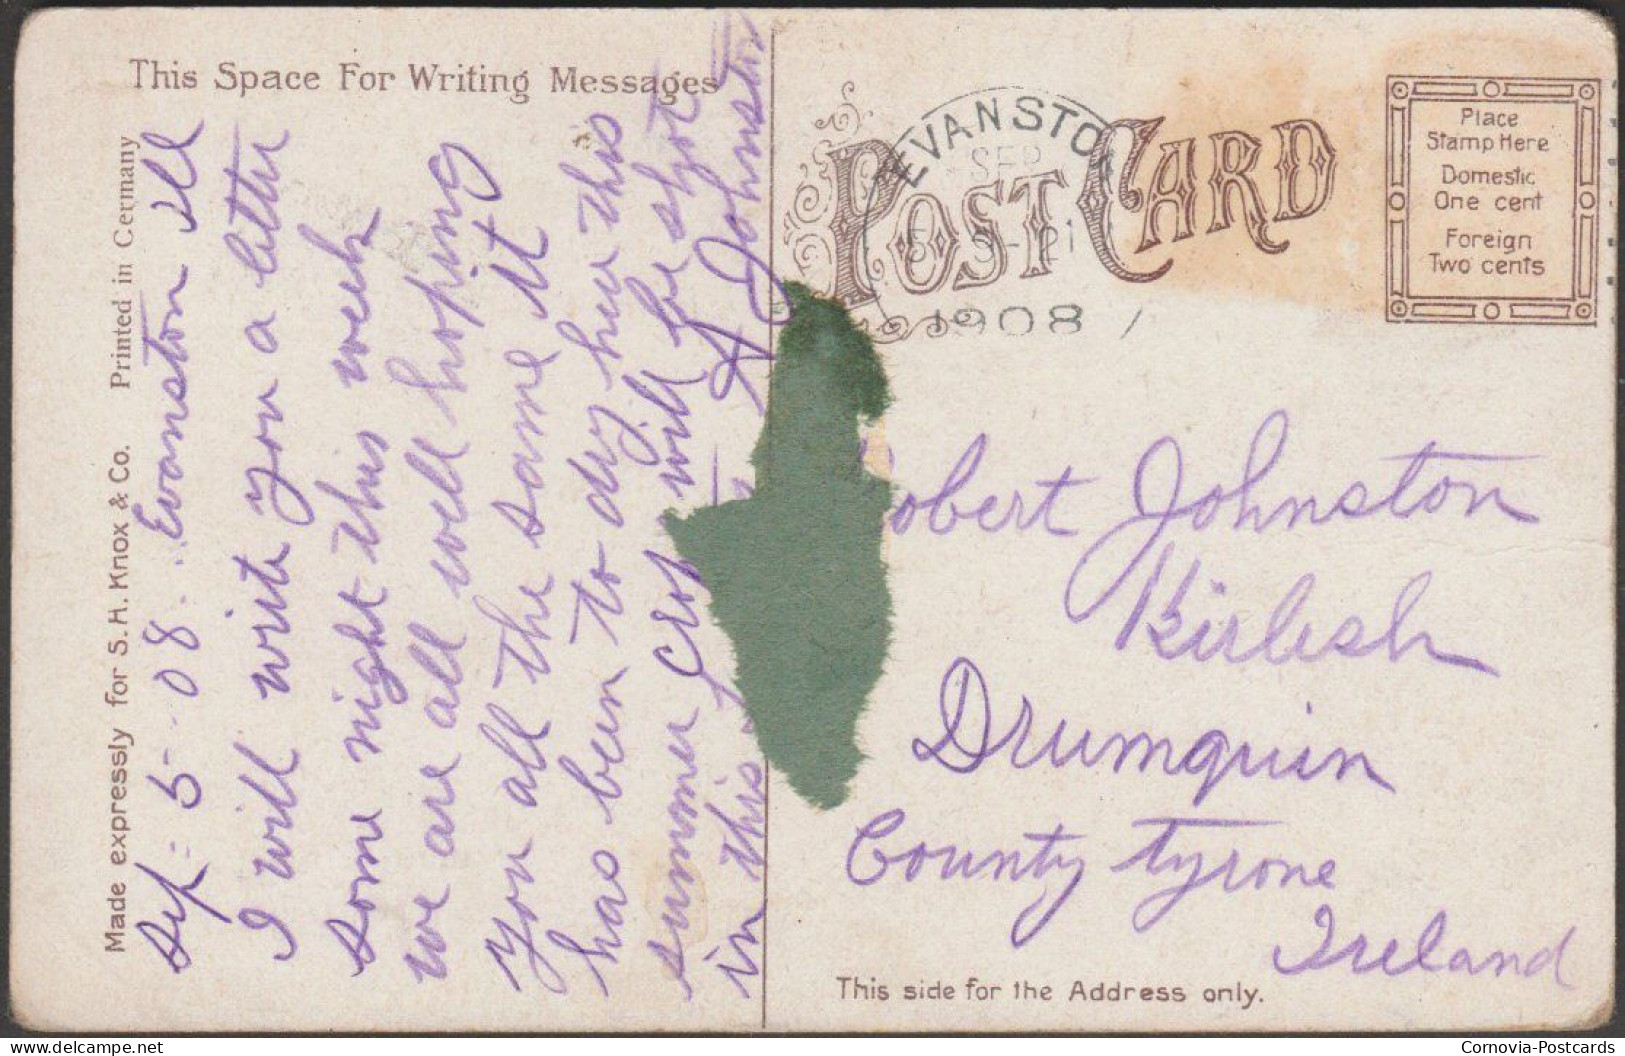 This Space For Writing Messages
Made expressly for S.H. Knox & Co. Printed in Germany
Sep: 5-08. Evanston Ill
I will write you a letter
some night this week
we are all well hoping
you all the same It
has been to dry her this
summer crop will be short
in this
A Johnston
POST CARD
EVANSTON
SEP
1908
Place
Stamp Here
Domestic
One cent
Foreign
Two cents
obert Johnston
Kirlesh
Drumquin
County Tyrone
Ireland
This side for the Address only.
www.delcampe.net
Cornovia-Postcards